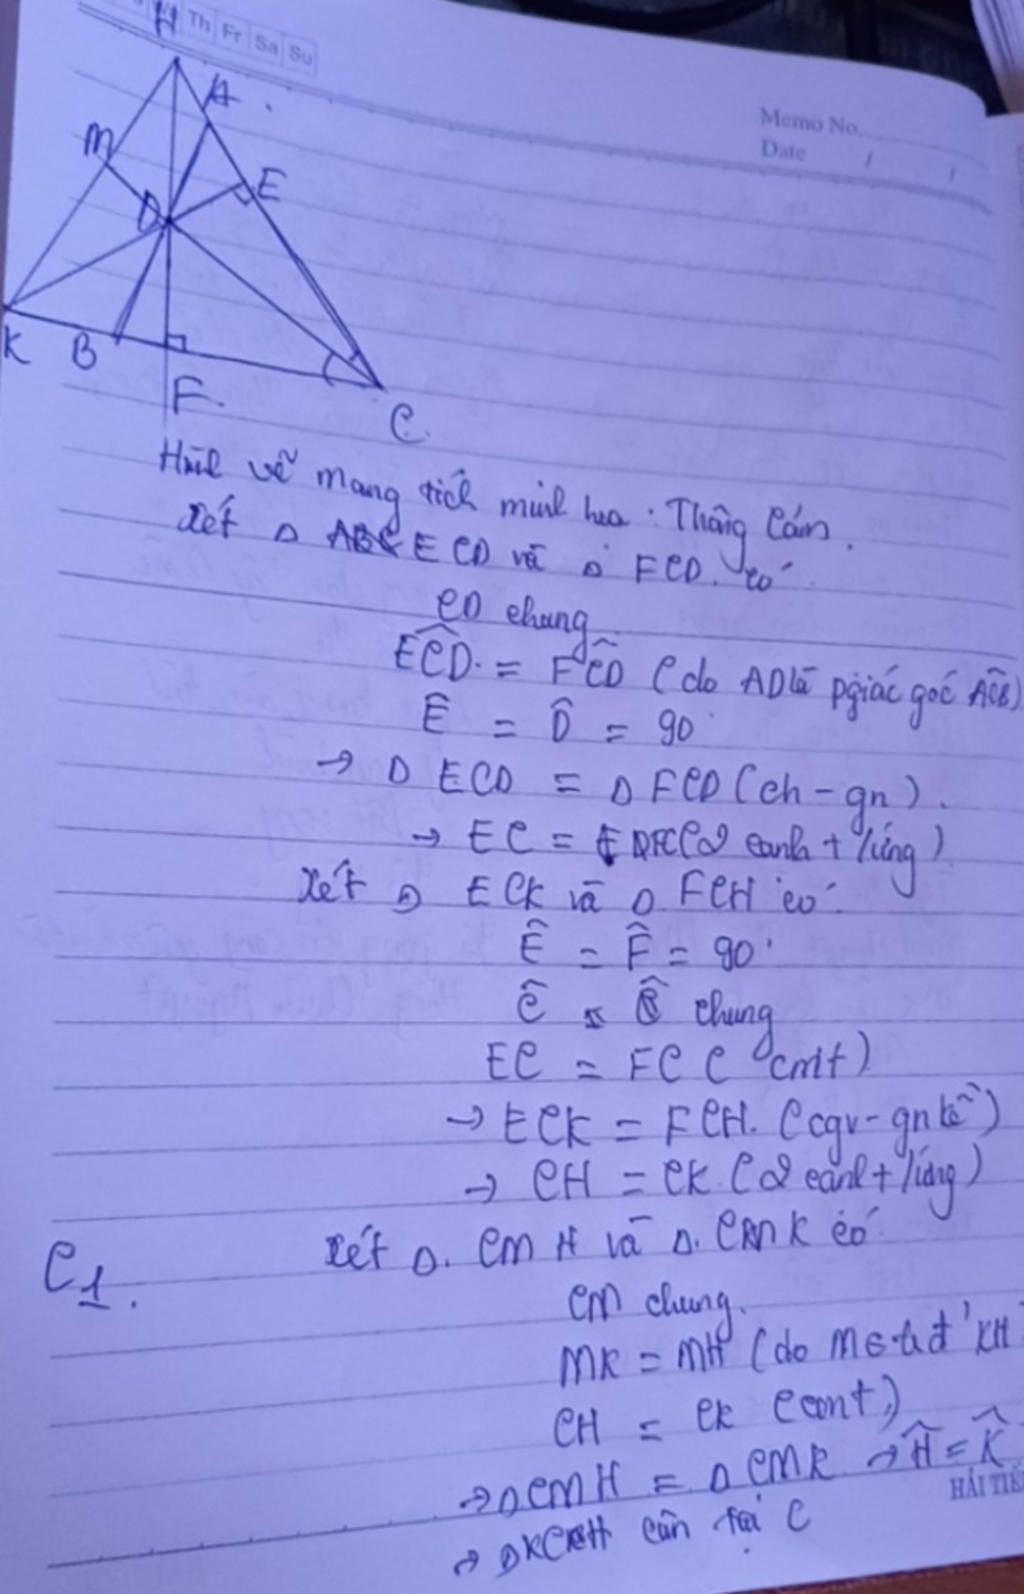 Th Fr Sa Su
Memo No.
Date / /
H
A
M
E
D
K B
F
C
Hình vẽ mang tích minh họa. Thông cảm.
Xét Δ ECD và Δ FCD có
CD chung
ECD = FCD (do AD là pgiác góc ACB)
Ê = D̂ = 90°
→ Δ ECD = Δ FCD (ch - gn).
→ EC = FC (2 cạnh + /ứng)
Xét Δ ECK và Δ FCH có
Ê = F̂ = 90°
Ĉ chung
EC = FC (cmt)
→ ECK = FCH. (cgv - gn kề)
→ CH = CK. (2 cạnh + /ứng)
C1. Xét Δ. CMH và Δ. CMK có
CM chung.
MK = MH (do M là tđ KH
CH = CK (cmt)
→ Δ CMH = Δ CMK → Ĥ = K̂
HẢI TIẾ
→ Δ KCH cân tại C